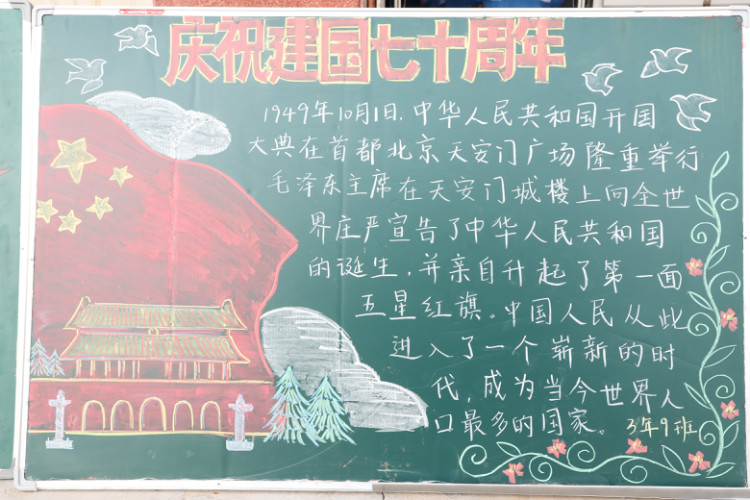 庆祝建国七十周年
1949年10月1日,中华人民共和国开国
大典在首都北京天安门广场隆重举行
毛泽东主席在天安门城楼上向全世
界庄严宣告了中华人民共和国
的诞生,并亲自升起了第一面
五星红旗。中国人民从此
进入了一个崭新的时
代,成为当今世界人
口最多的国家。
3年9班